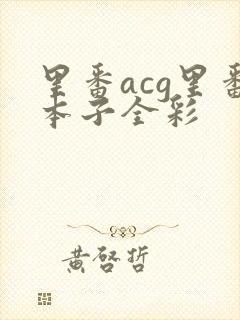 里番acg里番
本子全彩
黄啓哲